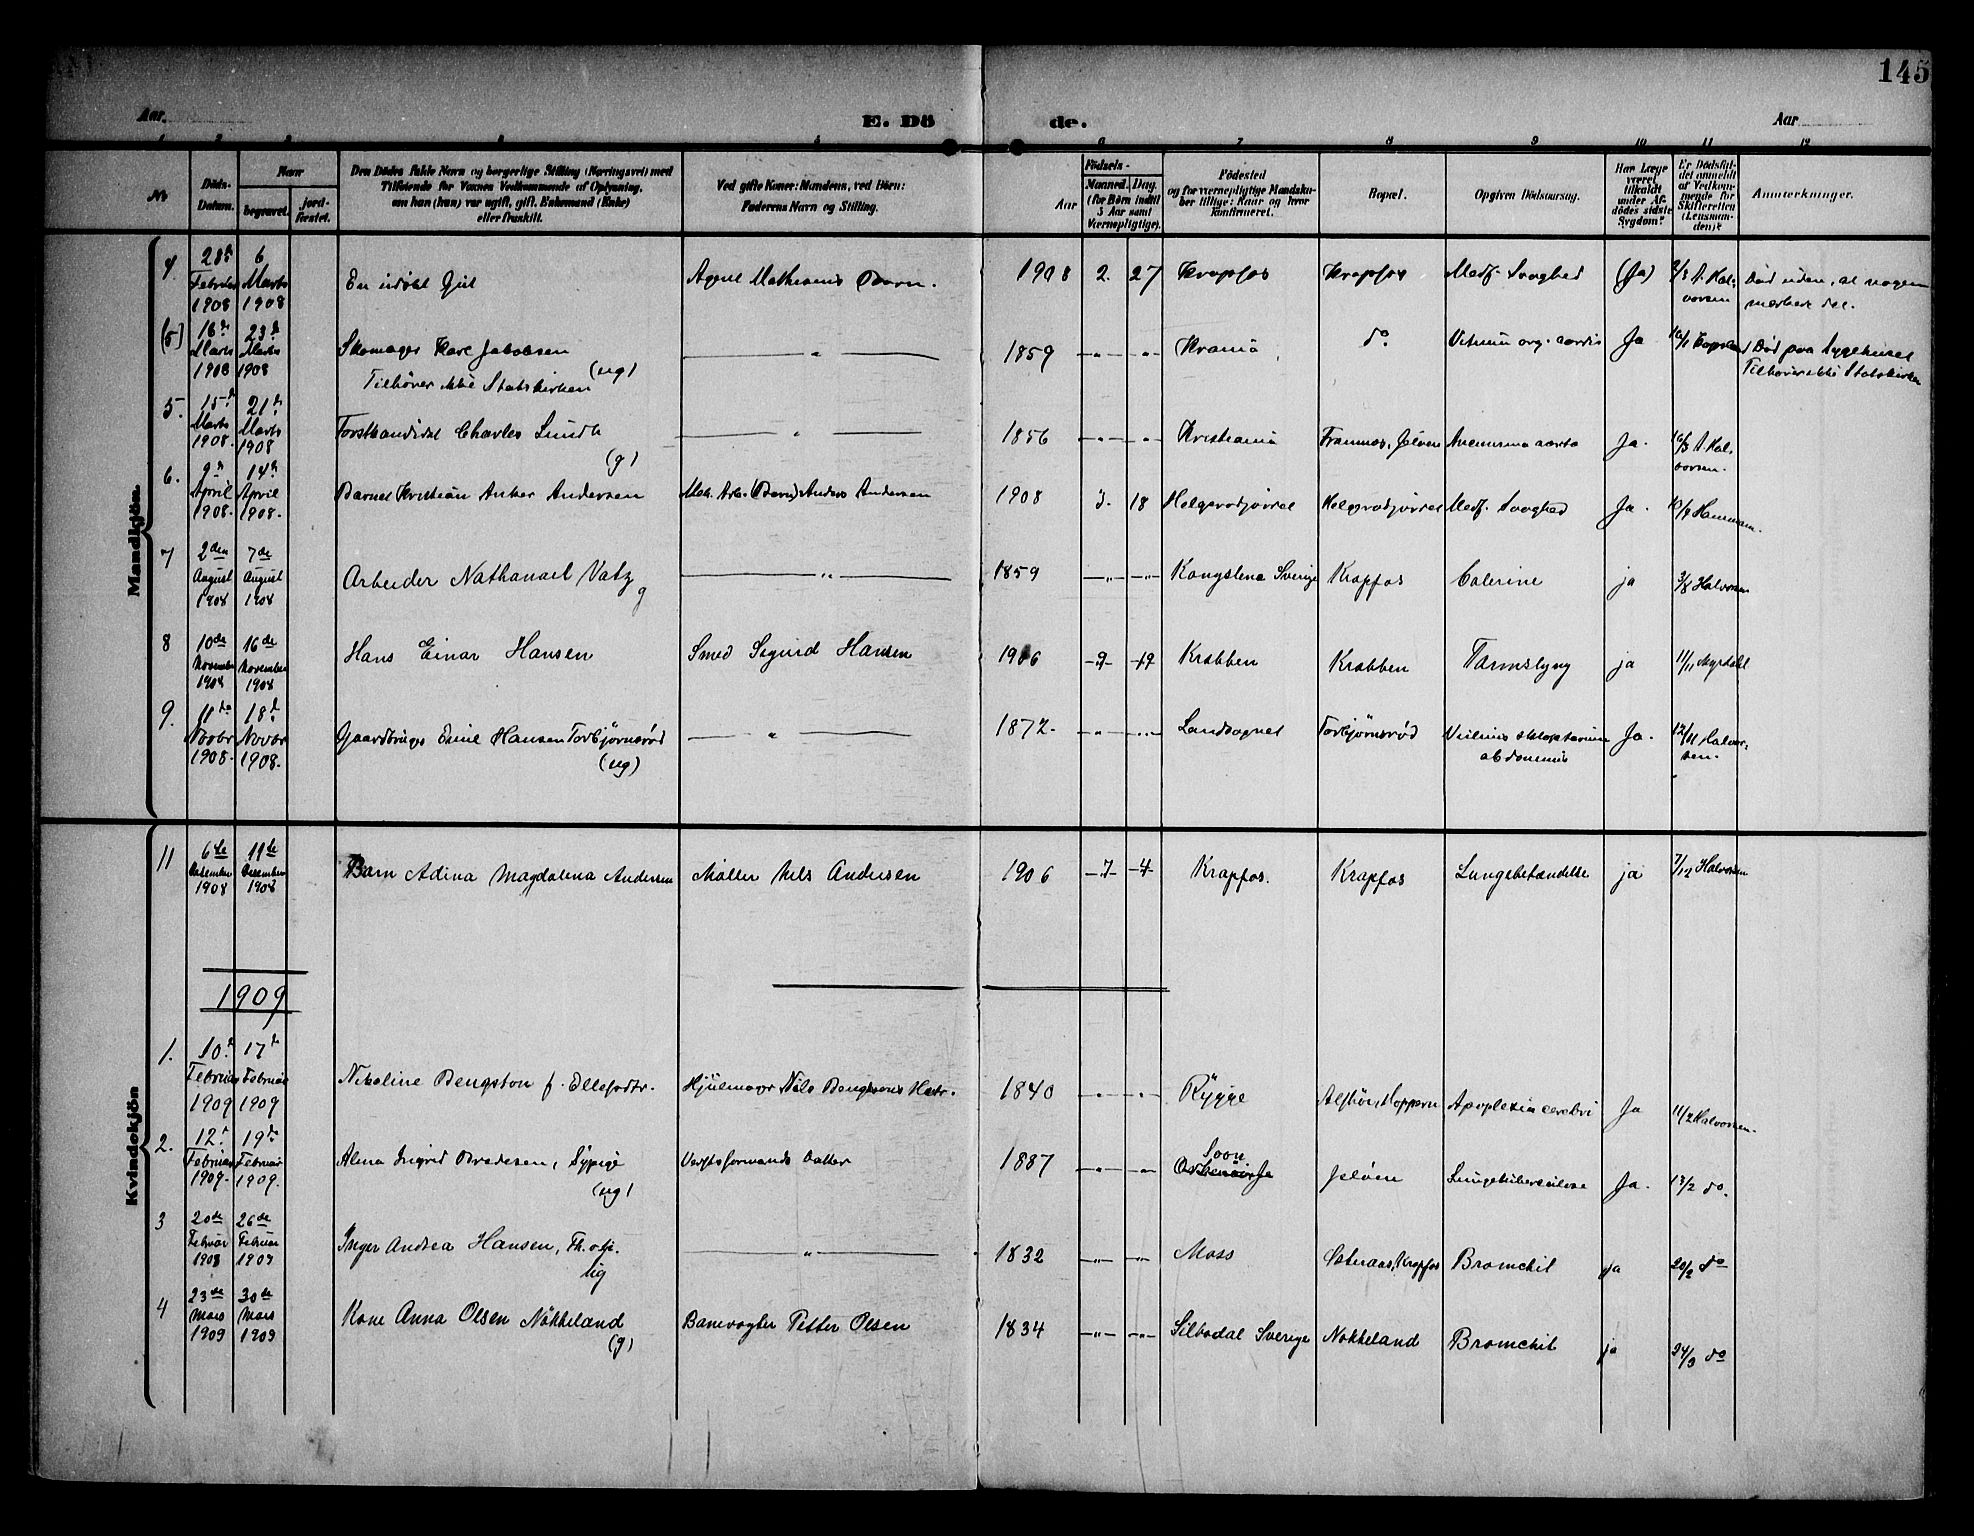 145
Aar
E. Dö
de.
Aar
1 2 3 4 5 6 7 8 9 10 11 12
No
Döds-
Datum.
Naar
begravet.
jord-
fæstet.
Den Dödes fulde Navn og borgerlige Stilling (Næringsvei) med
Tilføiende for Voxnes Vedkommende af Oplysning,
om han (hun) var ugift, gift, Enkemand (Enke)
eller fraskilt.
Ved gifte Koner: Mandens, ved Börn:
Faderens Navn og Stilling.
Födsels-
Aar
Maaned.
Dag.
(for Børn indtil
3 Aar samt
Værnepligtige).
Födested
og for værnepligtige Mandska-
ber tillige: Naar og hvor
konfirmeret.
Bopæl.
Opgiven Dödsaarsag.
Har Læge
været
tilkaldt
under Af-
dödes sidste
Sygdom?
Er Dödsfal-
det anmeldt
af Vedkom-
mende for
Skifteretten
(Lensman-
den)?
Anmærkninger.
Mandkjön.
4. 28de Februar 1908 6 Marts 1908 En udöbt Gut 1908 2. 27 Krapfos Krapfos Medf. Svaghed (Ja) 2/3 A. Hal-
vorsen Död uden, at nogen
mærkede det.
(5) 16de Marts 1908 23de Marts 1908 Skomager Karl Jakobsen (ug) — " — 1859 — " — — " — Krania do Vitium org. cordis Ja Död paa Sygehuset
Tilhörer ikke Statskirken Tilhörer ikke Statskirken
5. 15de Marts 1908. 21de Marts 1908 Forstkandidat Charles Lundh (g) — " — 1856 — " — — " — Kristiania Jelöen Aneurisma aorta Ja. 16/3 A. Hal-
vorsen.
6. 9de April 1908. 14de April 1908. Barnet Kristian Anker Andersen Mek. Arb. (Barn) Anders Andersen 1908 3. 18 Helgerödgjörret Helgerödgjörret Medf. Svaghed Ja.
7 2den August 1908 7de August 1908 Arbeider Nathanael Vatz g — " — 1859 — " — — " — Kongslena Sverige Krapfos ja 3/8 Halvorsen
8 10de November 1908 16de November 1908 Hans Einar Hansen Smed Sigurd Hansen 1906 - 9 - - 19 - Krabben Krabben Tarmslyng ja 11/11 Myrdahl
9. 11de Novbr 1908. 18de Novbr 1908. Gaardbruger Emil Hansen Torbjörnsröd (ug) — " — 1872. — " — — " — Landsognet Torbjörnsröd
abdominis Ja. 12/11 Halvor-
sen.
Kvindekjön
11 6te Desember 1908 11te Desember 1908 Barn Adina Magdalena Andersen Möller Nils Andersen 1906 - 7 - - 4 - Krapfos. Krapfos Lungebetændelse ja 7/12 Halvorsen
1909
1. 10de Februar 1909 17de Februar 1909 Nikoline Bengston f. Ellefsdtr. Hjulmager Nils Bengtsons Hustr. 1840 — " — — " — Rygge Apoplexia cerebri Ja 11/2 Halvorsen.
2. 12te Februar 1909. 19de Februar 1909. Alma Ingrid Bredesen, Sypige (ug) Verftsformands Datter 1887 — " — — " — Soon Jelöen Lungetuberculose Ja. 13/2 do.
3 20de Februar 1908 26de Februar 1909 Inger Andrea Hansen, ug — " — 1832 — " — — " — Moss Östraas, Krapfos Bronchit ja 20/2 do
4 23de Mars 1909 30de Mars 1909 Kone Anna Olsen Nökkeland (g) Banevogter Petter Olsen 1834 — " — — " — Silbodal Sverige Nökkeland Bronchit ja 24/3 do